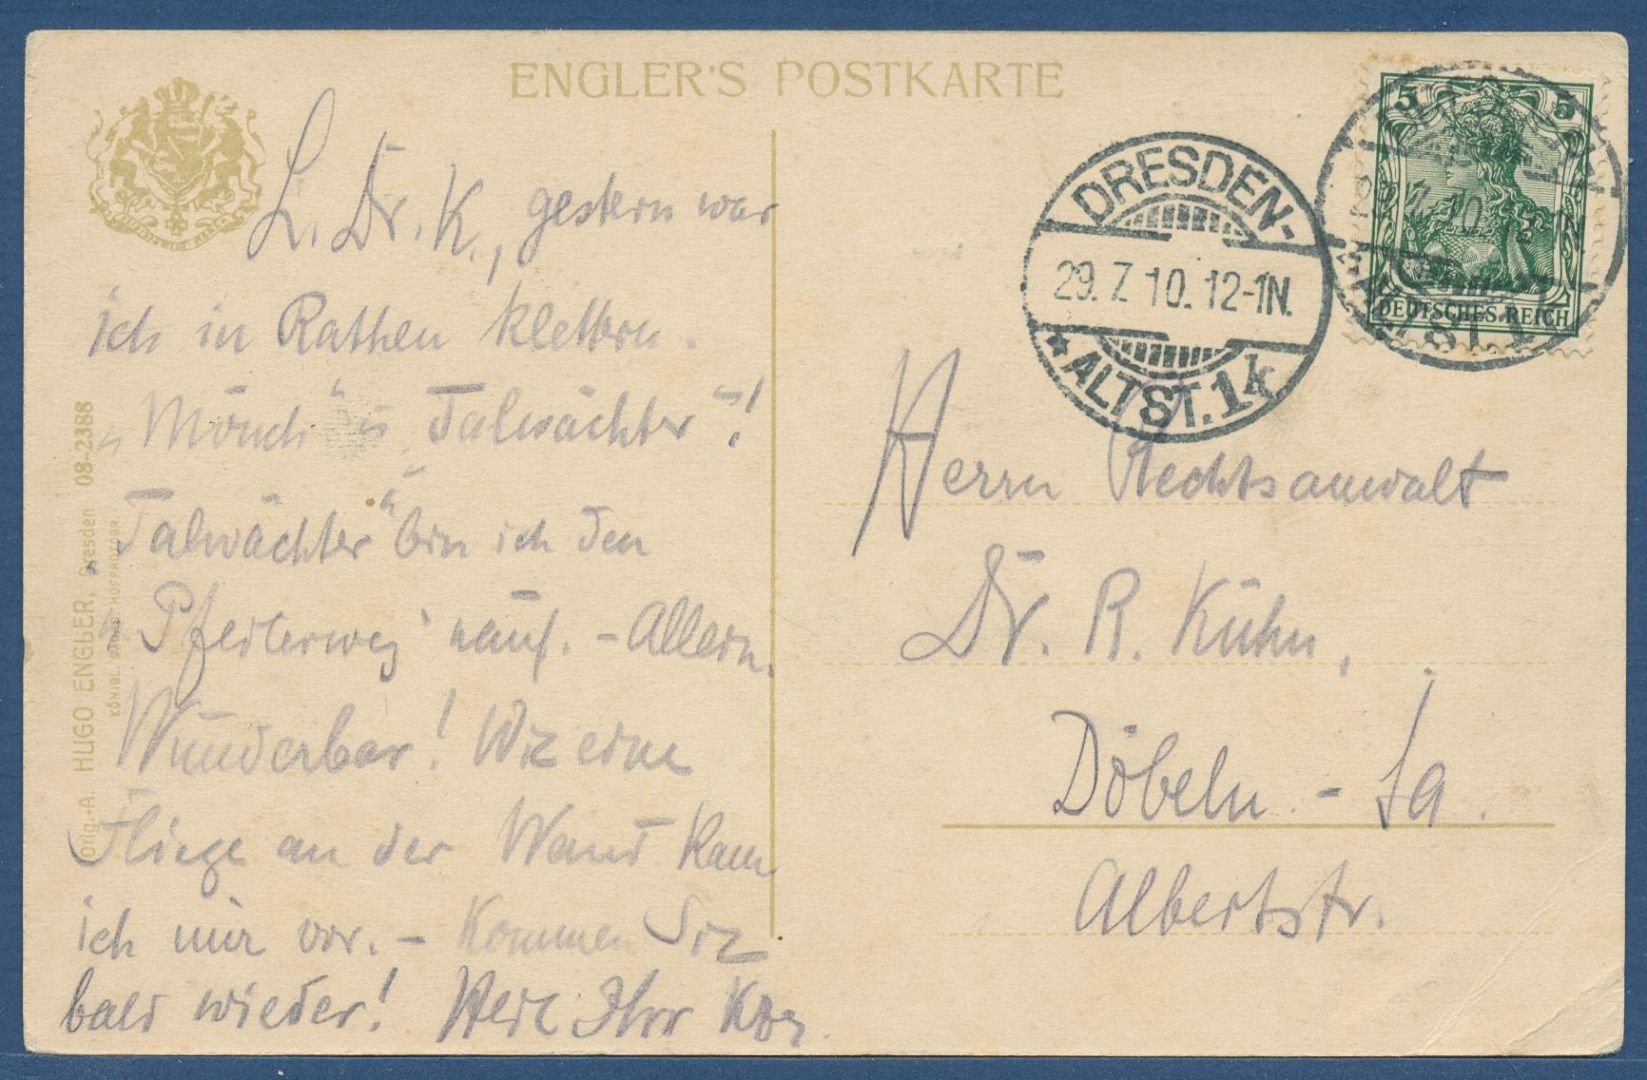 ENGLER'S POSTKARTE
L. Dr. K., gestern war
ich in Rathen klettern.
„Mönch" u. „Talwächter"!
„Talwächter" bin ich den
„Pfeilerweg" nauf. - Allein.
Wunderbar! Wie eine
Fliege an der Wand kam
ich mir vor. - Kommen Sie
bald wieder! Heil Ihr
Orig.-A. HUGO ENGLER, Dresden 08-2388
DRESDEN-
29.7.10.12-1N.
* ALTST. 1k
5 5
DEUTSCHES REICH
Herrn Rechtsanwalt
Dr. R. Kühn,
Döbeln - Sa.
Albertstr.